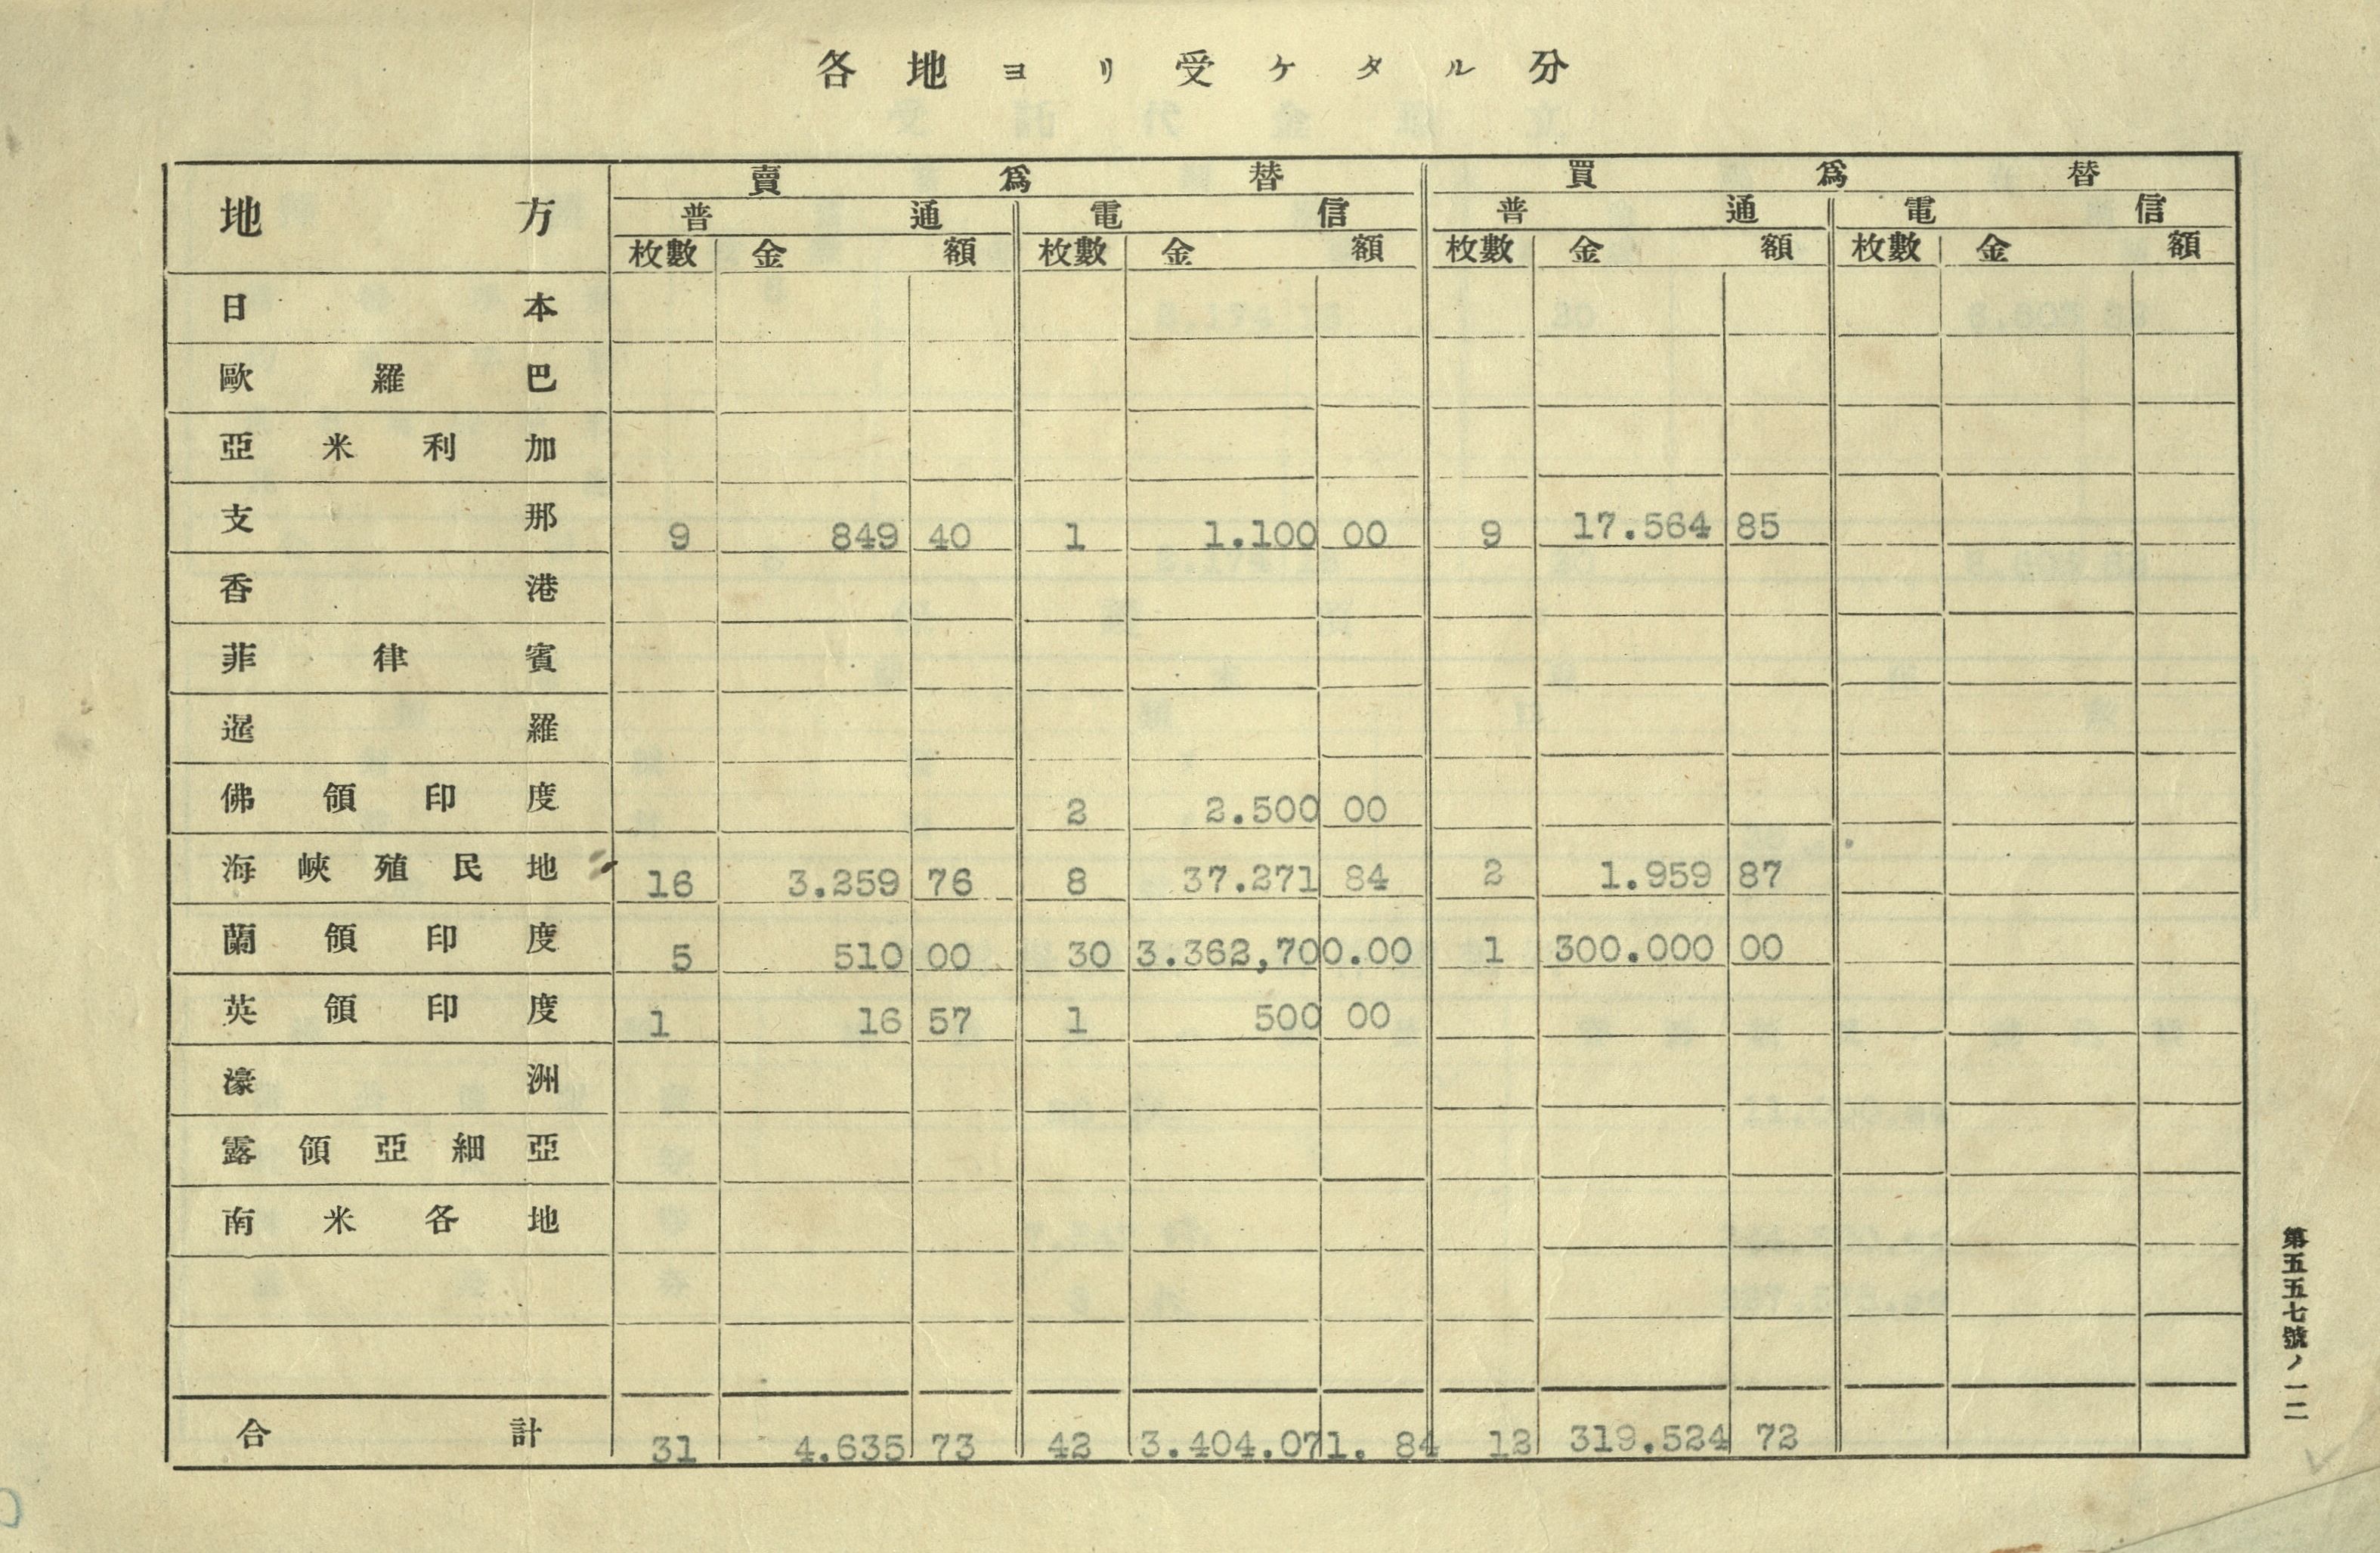 各地ヨリ受ケタル分
地方 賣爲替 買爲替
普通 電信 普通 電信
枚數 金額 枚數 金額 枚數 金額 枚數 金額
日本
歐羅巴
亞米利加
支那 9 849 40 1 1.100 00 9 17.564 85
香港
菲律賓
暹羅
佛領印度 2 2.500 00
海峽殖民地 16 3.259 76 8 37.271 84 2 1.959 87
蘭領印度 5 510 00 30 3.362,700.00 1 300.000 00
英領印度 1 16 57 1 500 00
濠洲
露領亞細亞
南米各地
合計 31 4.635 73 42 3.404.071. 84 12 319.524 72
第五五七號ノ一二